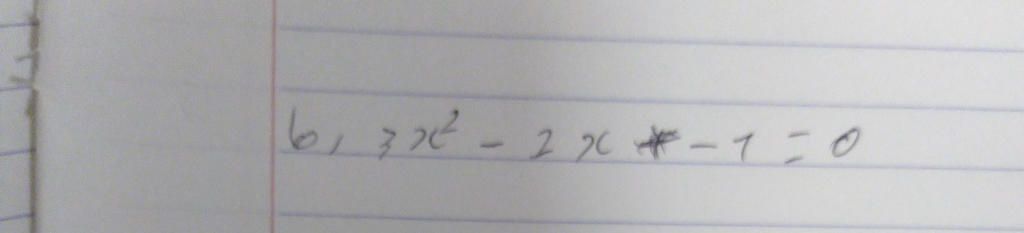 b, 3x² - 2x - 1 = 0